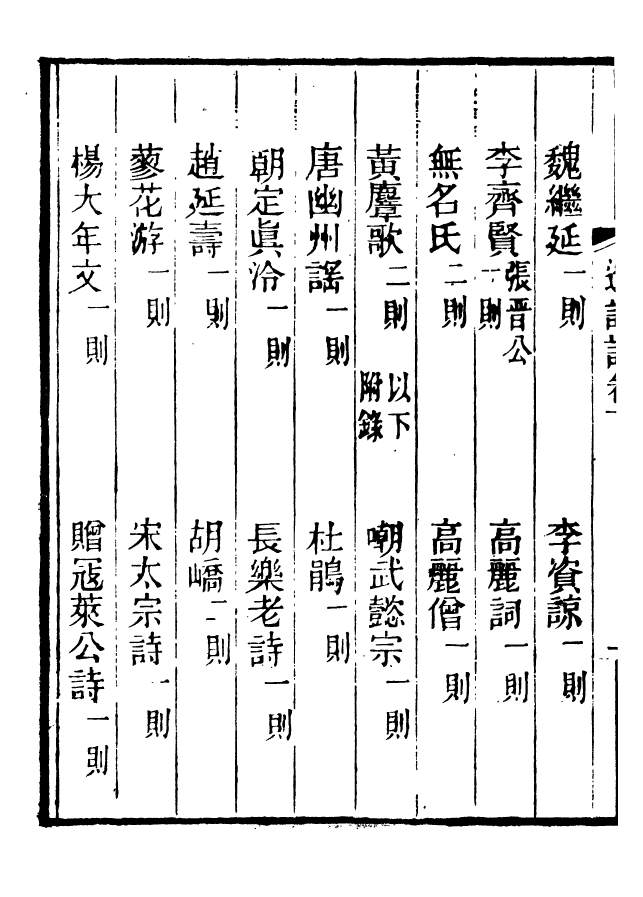 魏繼延一則　李資諒一則
李齊賢張晉公一則　高麗詞一則
無名氏二則　高麗僧一則
黃麞歌二則　以下附錄　嘲武懿宗一則
唐幽州謠一則　杜鵑一則
朝定眞泠一則　長樂老詩一則
趙延壽一則　胡嶠二則
蓼花游一則　宋太宗詩一則
楊大年文一則　贈冦萊公詩一則